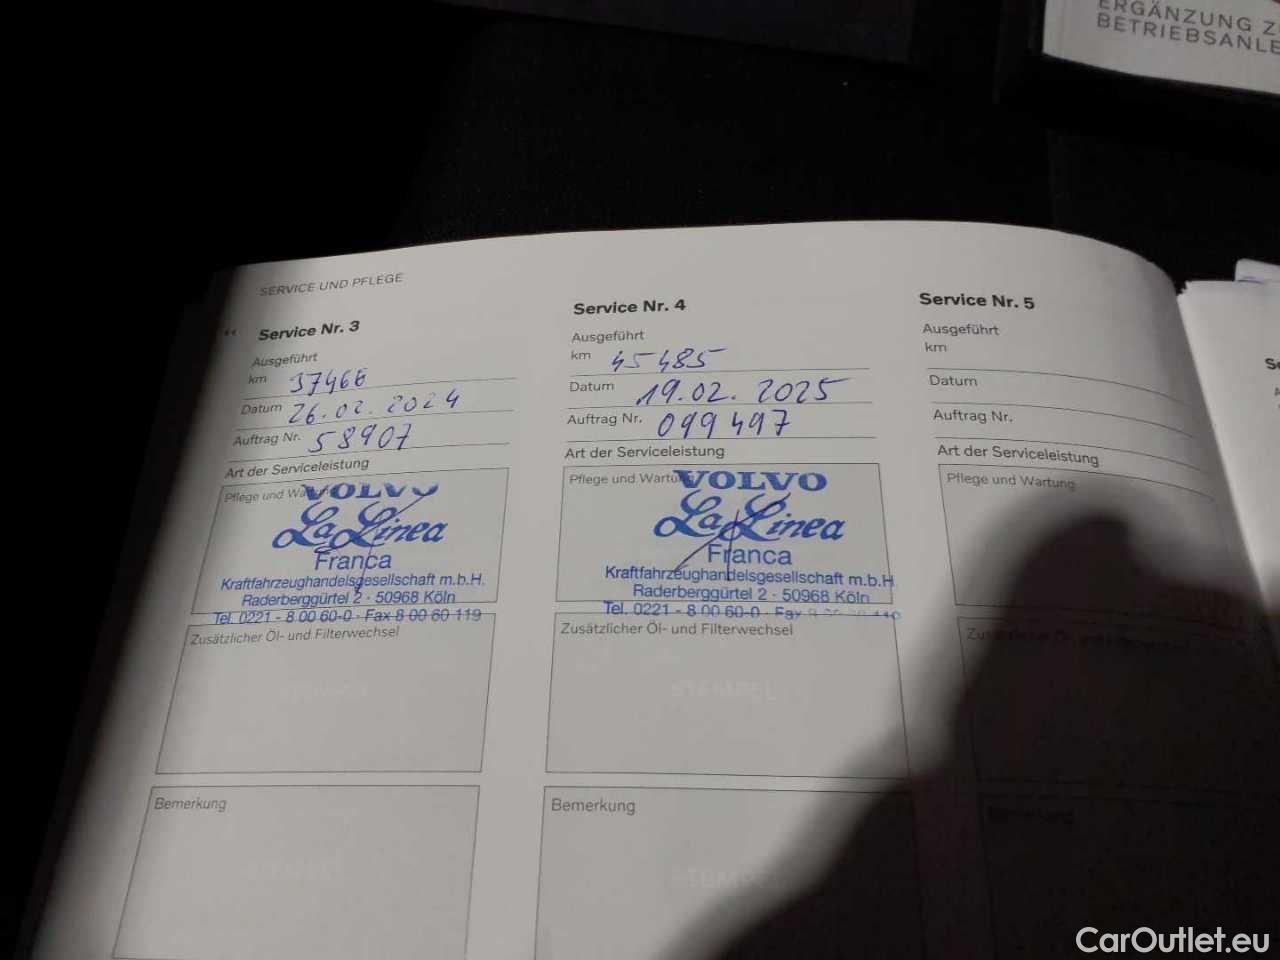 ERGÄNZUNG Z
BETRIEBSANLE
SERVICE UND PFLEGE
Service Nr. 3
Ausgeführt
km 37466
Datum 26.02.2024
Auftrag Nr. 58907
Art der Serviceleistung
Pflege und Wartung
VOLVO
La Linea
Franca
Kraftfahrzeughandelsgesellschaft m.b.H.
Raderberggürtel 2 · 50968 Köln
Tel. 0221 - 8 00 60-0 · Fax 8 00 60 119
Zusätzlicher Öl- und Filterwechsel
Bemerkung
Service Nr. 4
Ausgeführt
km 45485
Datum 19.02.2025
Auftrag Nr. 099497
Art der Serviceleistung
Pflege und Wartung
VOLVO
La Linea
Franca
Kraftfahrzeughandelsgesellschaft m.b.H
Raderberggürtel 2 · 50968 Köln
Tel. 0221 - 8 00 60-0 · Fax 8 00 60 119
Zusätzlicher Öl- und Filterwechsel
STEMPEL
Bemerkung
STEMPEL
Service Nr. 5
Ausgeführt
km
Datum
Auftrag Nr.
Art der Serviceleistung
Pflege und Wartung
Zusätzlicher Öl- und Filterwechsel
Bemerkung
CarOutlet.eu